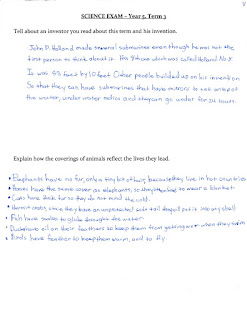 SCIENCE EXAM – Year 5, Term 3
Tell about an inventor you read about this term and his invention.
John P. Holland made several submarines even though he was not the
first person to think about it. His 9th one which was called Holland No.
It was 53 feet by 10 feet. Other people builded on his invention
So that they can have submarines that have mirrors to not
the water, under water radios and stay can go under for 24 hours.
Explain how the coverings of animals reflect the lives they lead.
• Elephants have no fur, only a tiny bit of hair because they live in hot countries
• have the same cover as elephants, so they to wear a blanket.
• Cats have thick fur so they do not mind the cold.
• Hermit crabs, since they have an unprotected soft tail put it into any shell
• Fish have scales to glide through the water
• Ducks have oil on their feathers to keep them from getting when they swim
• Birds have feathers to keep them warm, and to fly.